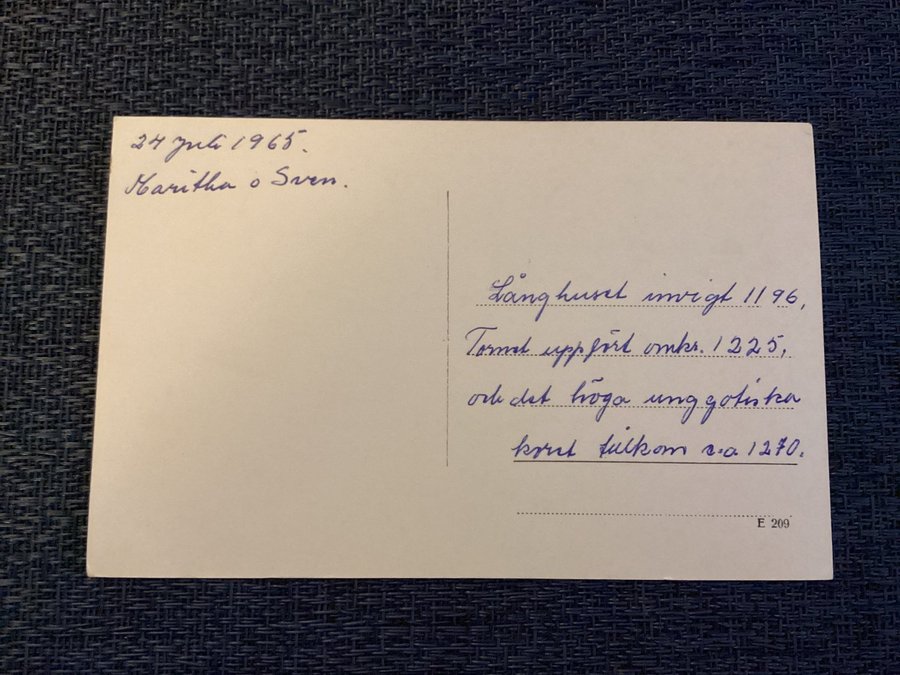 24 juli 1965.
Maritha o Sven.
Långhuset invigt 1196,
Tornet uppfört omkr. 1225,
och det höga unggotiska
koret tillkom c:a 1270.
E 209